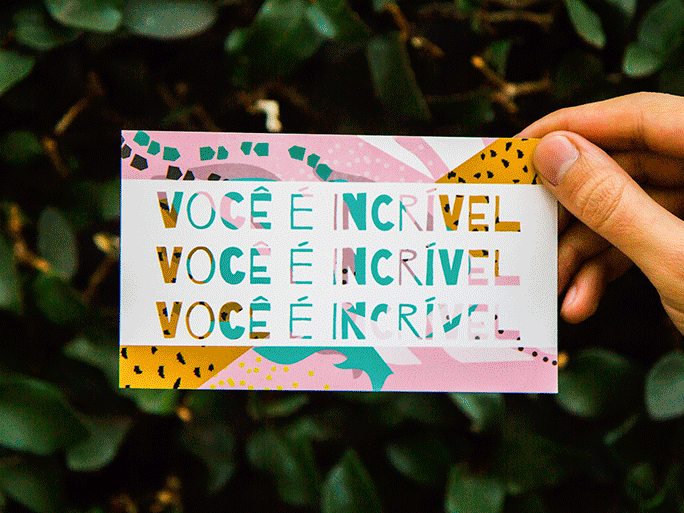 VOCÊ É INCRÍVEL
VOCÊ É INCRÍVEL
VOCÊ É INCRÍVEL